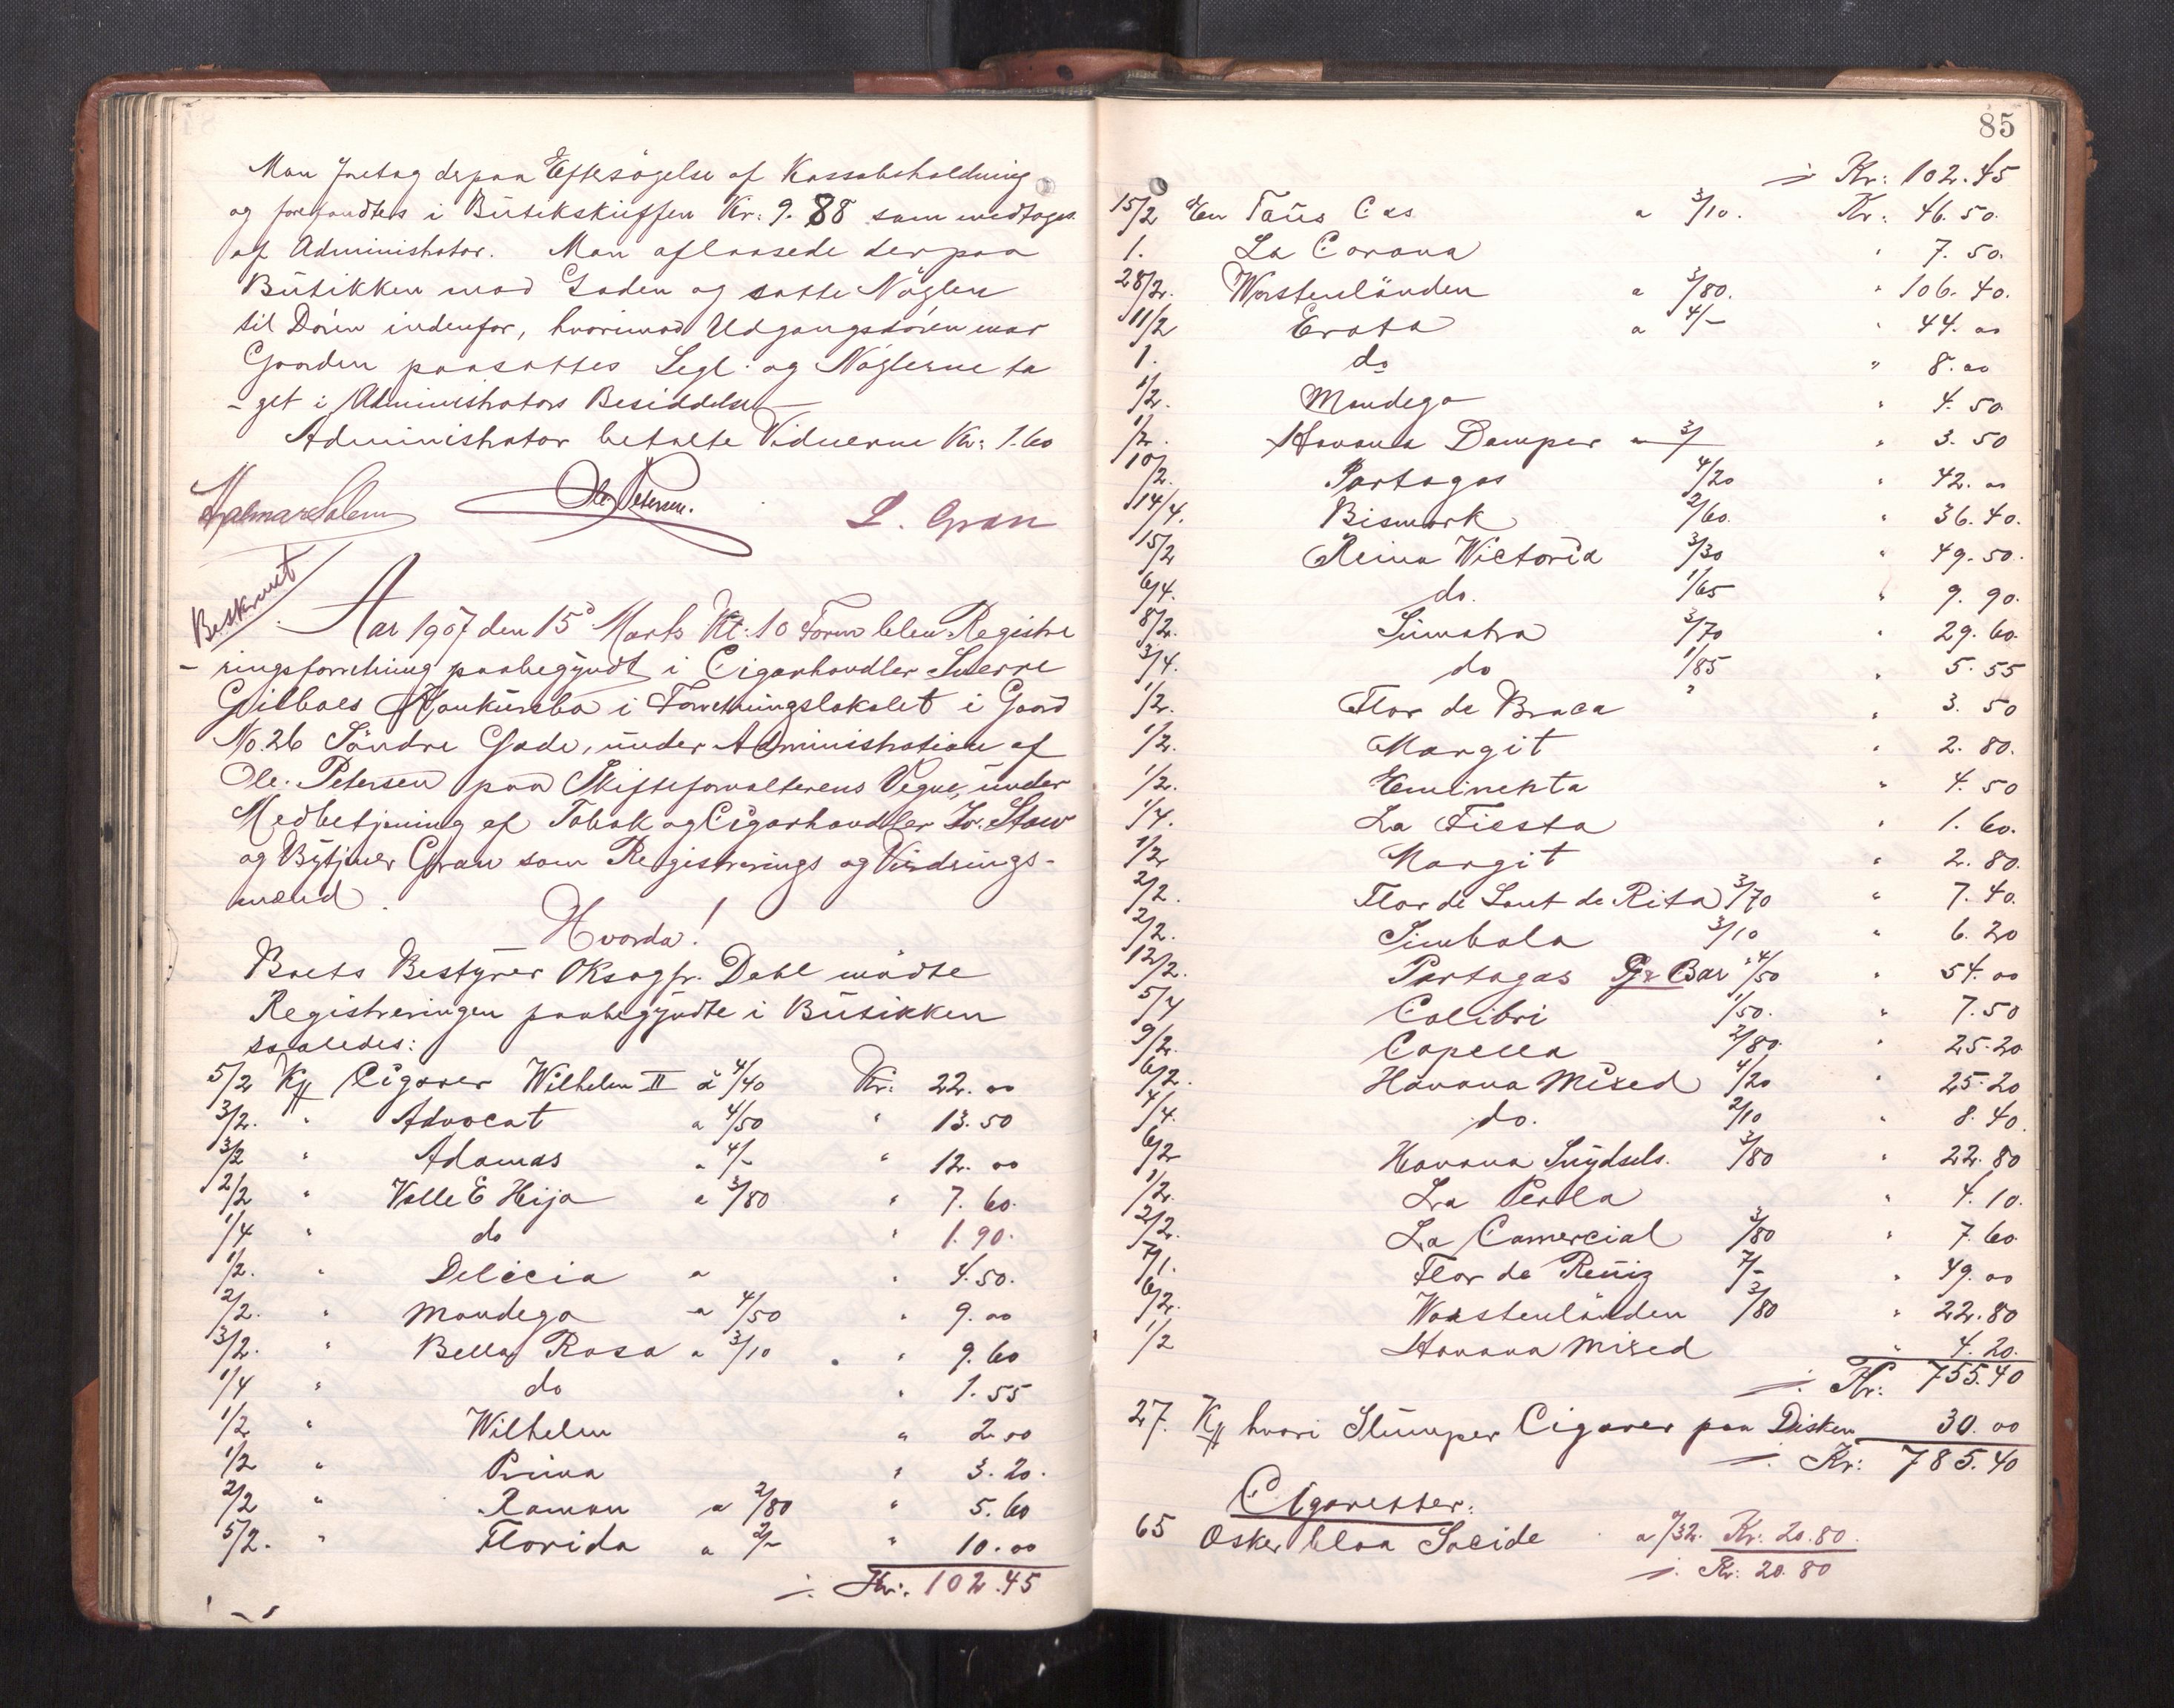 Man foretog derpaa Eftersøgelse af Kassabeholdning
og forefandtes i Butikskuffen Kr: 9.88 som medtoges
af Administrator. Man aflaasede derpaa
Butikken mod Gaden og satte Nøglen
til Døren indenfor, hvorimod Udgangsdøren mod
Gaarden paasattes Segl og Nøglerne ta
- get i Administrators Besiddelse
Administrator betalte Vidnerne Kr: 1.60
Hjalmar Solem Ole Petersen. L. Gran
Beskrevet
Aar 1907 den 15de Marts Kl: 10 Form blev Registre
- ringsforretning paabegyndt i Cigarhandler Sverre
Gilboes Konkursbo i Forretningslokalet i Gaard
No. 26 Søndre Gade, under Administration af
Ole Petersen paa Skifteforvalterens Vegne, under
Medbetjening af Tobak og Cigarhandler Stav
og Bytjener Gran som Registrerings og Vurderings-
mænd.
Hvorda!
Boets Bestyrer OKsagfr. Dahl mødte
Registreringen paabegyndte i Butikken
saaledes:
5/2 Ks Cigarer Wilhelm II a 4/40 Kr: 22.00
3/2. " Advocat a 4/50 " 13.50
3/2 " Adamas a 4/- " 12.00
2/2 " Valle E Hija a 3/80 " 7.60.
1/4 " do " 1.90.
1/2. " Delicia a " 4.50.
2/2. " Mondego a 4/50 " 9.00
3/2. " Bella Rosa a 3/10 " 9.60
1/4 " do " 1.55
1/2 " Wilhelm " 2.00
1/2 " Prima " 3.20.
2/2 " Ramon a 2/80 " 5.60
5/2. " Florida a 2/- " 10.00
Kr: 102.45
85
Kr: 102.45
15/2 En Taus Cas a 3/10. Kr: 46.50.
1. La Corona " 7.50.
28/2. Worstenländen a 3/80. " 106.40.
11/2 Erota a 4/- " 44.00
1. do " 8.00
1/2. Mondego " 4.50
1/2. Havana Damper a 3/ " 3.50
10/2. Partagas 4/20 " 42.00
14/4. Bismark 2/60. " 36.40.
15/2 Reina Victoria 3/30 " 49.50.
6/4. do. 1/65 " 9.90.
8/2. Sumatra 3/70 " 29.60.
3/4. do 1/85 " 5.55
1/2. Flor de Braca " " 3.50
1/2. Margit " 2.80.
1/2. Eminenta " 4.50
1/4. La Fiesta " 1.60.
1/2 Margit " 2.80.
2/2. Flor de Sant de Rita 3/70 " 7.40.
2/2. Simbola 3/10 " 6.20
12/2. Partagas Bar 4/50 " 54.00
5/4 Colibri 1/50. " 7.50
9/2. Capella 2/80. " 25.20
6/2. Havana Mixed 4/20 " 25.20
4/4. do. 2/10 " 8.40.
6/2 Havana Snydsels. 3/80 " 22.80
1/2. La Perla " 4.10.
2/2. La Comercial 3/80 " 7.60
7/1. Flor de Reniz 7/- " 49.00
6/2. Worstenländen 3/80 " 22.80
1/2 Havana Mixed " 4.20.
Kr: 755.40
27. Ks hvori Slumper Cigarer paa Disken 30.00
Kr: 785.40
Cigaretter:
65 Osker blaa Saeide a "/32. Kr: 20.80.
Kr: 20.80